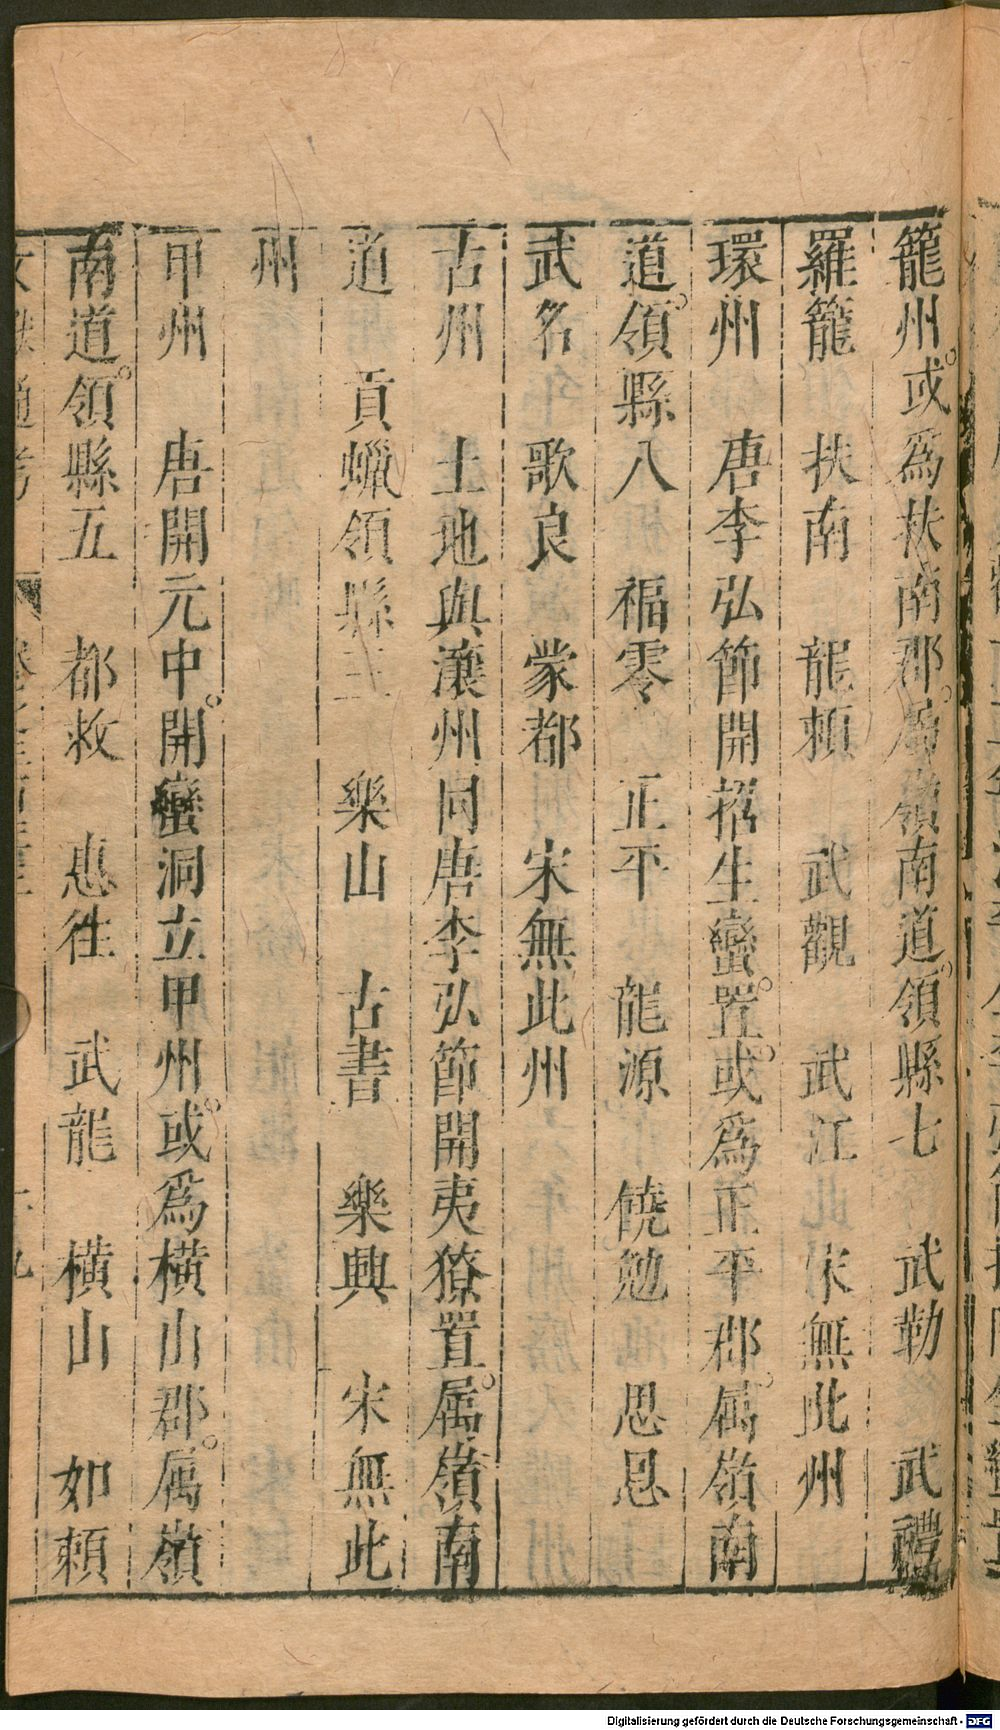 籠州。或爲扶南郡。屬嶺南道。領縣七　武勒　武禮
羅籠　扶南　龍賴　武觀　武江　宋無此州
環州　唐李弘節開招生蠻。置。或爲正平郡。属嶺南
道。領縣八　福零　正平　龍源　饒勉　思恩
武名　歌良　蒙都　宋無此州
古州　土地與瀼州同唐李弘節開夷獠置。属嶺南
道　貢蠟領縣三　樂山　古書　樂興　宋無此
州
甲州　唐開元中。開蠻洞立甲州。或爲橫山郡。属嶺
南道。領縣五　都救　惠徃　武龍　橫山　如賴
通考
Digitalisierung gefördert durch die Deutsche Forschungsgemeinschaft - DFG